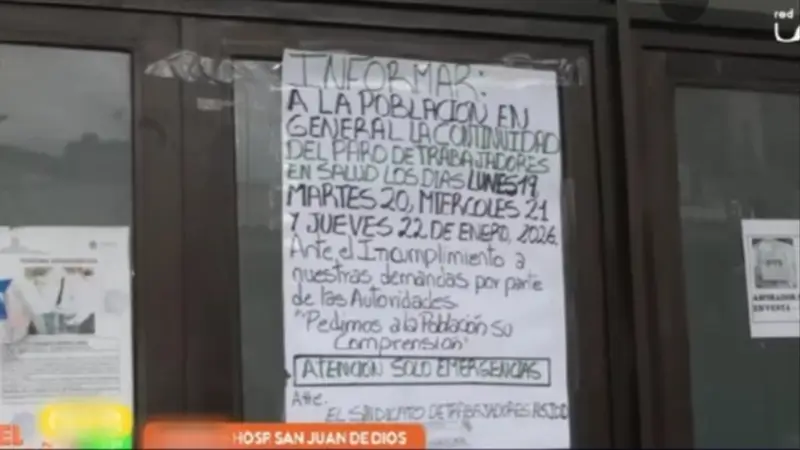 INFORMAR:
A LA POBLACION EN
GENERAL LA CONTINUIDAD
DEL PARO DE TRABAJADORES
EN SALUD LOS DIAS LUNES 19,
MARTES 20, MIERCOLES 21
Y JUEVES 22 DE ENERO, 2026.
Ante el Incumplimiento a
nuestras demandas por parte
de las Autoridades.
"Pedimos a la Población su
Comprensión"
ATENCION SOLO EMERGENCIAS
Atte.
EL SINDICATO DE TRABAJADORES HSJDD
red
EN VENTA
EL
HOSP. SAN JUAN DE DIOS